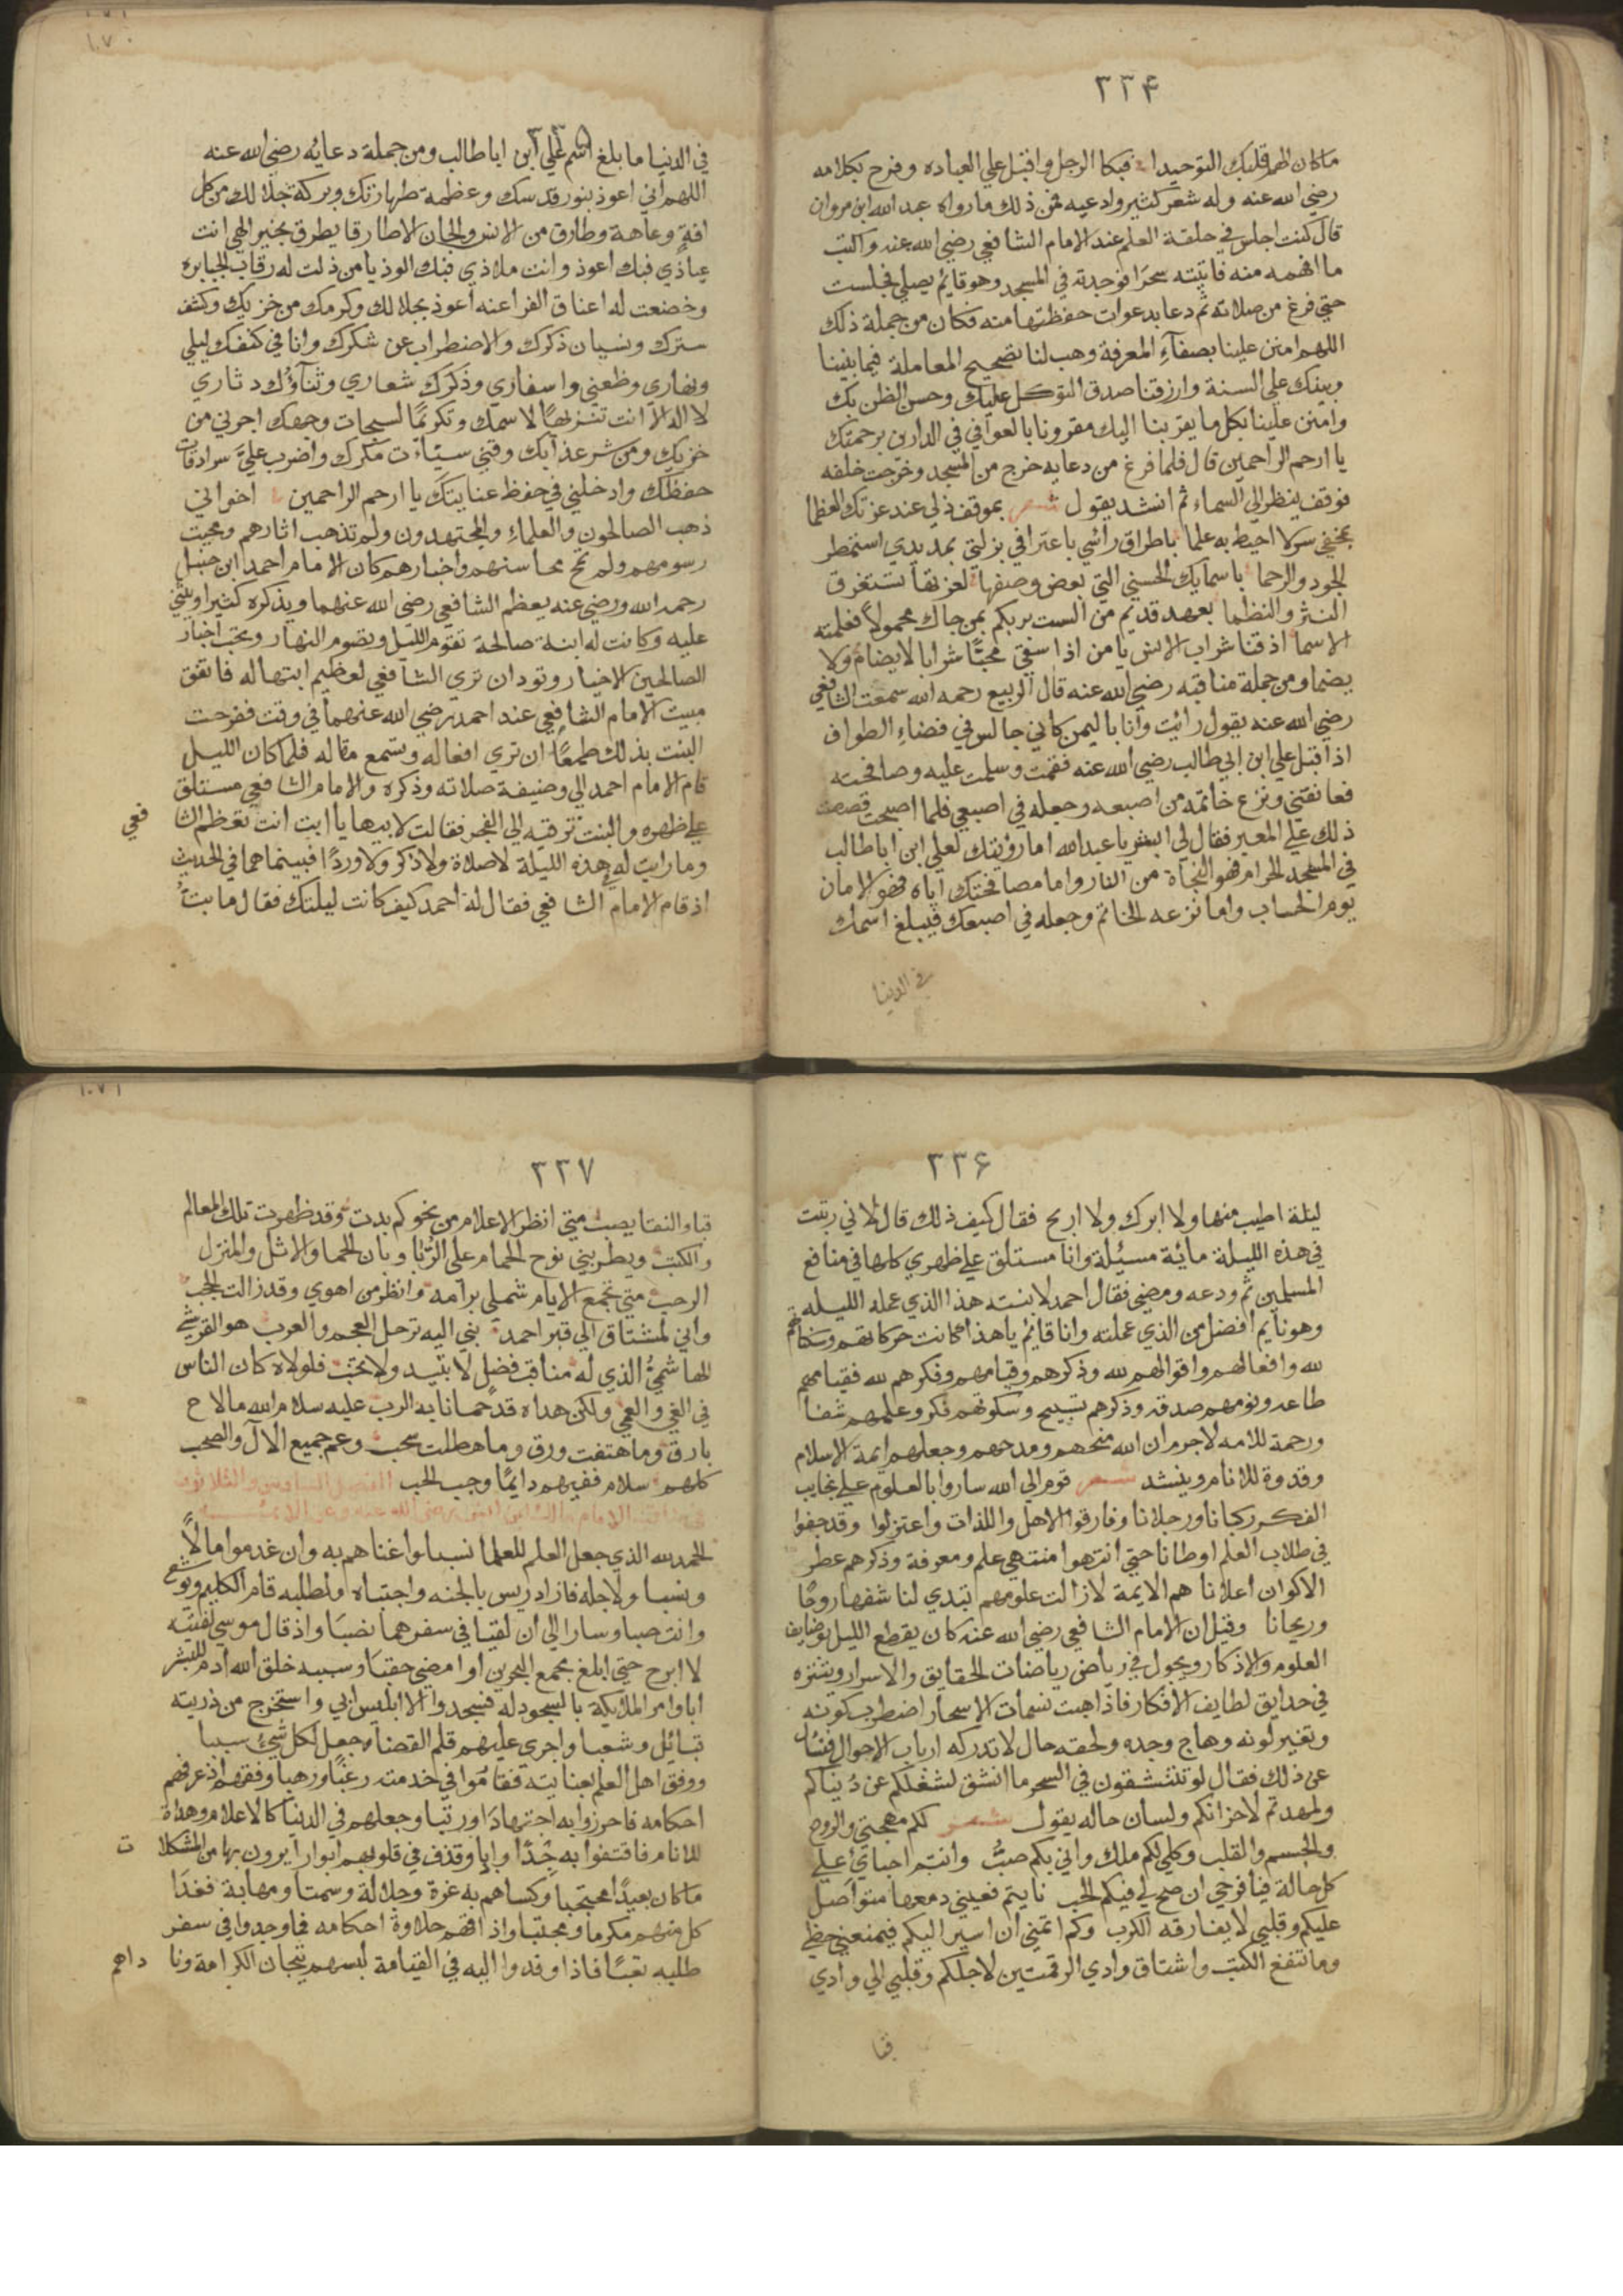 ٣٣۴
ما كان الهم قلبك التوحيدا فبكا الرجل واقبل علي العباده وفرح بكلامه
رضي الله عنه وله شعر كثير وادعيه فمن ذلك ما رواه عبد الله ابن مروان
قال كنت اجلس في حلقة العلم عند الامام الشافعي رضي الله عنه واكتب
ما افهمه منه فاتيته سحرا فوجدته في المسجد وهو قايم يصلي فجلست
حتي فرغ من صلاته ثم دعا بدعوات حفظتها منه فكان من جملة ذلك
اللهم امنن علينا بصفآء المعرفة وهب لنا تصحيح المعاملة فيما بيننا
وبينك علي السنة وارزقنا صدق التوكل عليك وحسن الظن بك
وامنن علينا بكل ما يقربنا اليك مقرونا بالعوافي في الدارين برحمتك
يا ارحم الراحمين قال فلما فرغ من دعايه خرج من المسجد وخرجت خلفه
فوقف ينظر الي السماء ثم انشد يقول شعر بموقف ذلي عند عزتك العظما
بمخفي سر لا احيط به علما باطراق راسي باعترافي بزلتي بمد يدي استمطر
الجود والرحما باسمايك الحسني التي بعض وصفها لعزتها تستغرق
النثر والنظما بعهد قديم من الست بربكم بمن جاك مجهولا فعلمته
الاسما اذقنا شراب الانس يا من اذا سقي محبًّا شرابا لا يضام ولا
يضما ومن جملة مناقبه رضي الله عنه قال الربيع رحمه الله سمعت الشافعي
رضي الله عنه يقول رائيت وانا باليمن كاني جالس في فضاء الطواف
اذ اقبل علي ابن ابي طالب رضي الله عنه فقمت وسلمت عليه وصافحته
فعانقني ونزع خاتمه من اصبعه وجعله في اصبعي فلما اصبحت قصصت
ذلك علي المعبر فقال لي ابشر يا عبد الله اما رؤيتك لعلي ابن ابا طالب
في المسجد الحرام فهو النجاة من النار واما مصافحتك اياه فهو الامان
يوم الحساب واما نزعه الخاتم وجعله في اصبعك فيبلغ اسمك
في الدنيا
١٠٧٠
٣٣۵
في الدنيا ما بلغ اسم علي ابن ابا طالب ومن جملة دعايه رضي الله عنه
اللهم اني اعوذ بنور قدسك وعظمة طهارتك وبركة جلالك من كل
افة وعاهة وطارق من الانس والجان الا طارقا يطرق بخير الهي انت
عياذي فبك اعوذ وانت ملاذي فبك الوذ يا من ذلت له رقاب الجبابره
وخضعت له اعناق الفراعنه اعوذ بجلالك وكرمك من خزيك وكشف
سترك ونسيان ذكرك والاضطراب عن شكرك وانا في كنفك ليلي
ونهاري وظعني واسفاري وذكرك شعاري وثنآؤك دثاري
لا اله الا انت تنزيهًا لاسمك وتكرمًا لسبحات وجهك اجرني من
خزيك ومن شر عذابك وقني سيئات مكرك واضرب عليّ سرادقات
حفظك وادخلني في حفظ عنايتك يا ارحم الراحمين اخواني
ذهب الصالحون والعلماء والمجتهدون ولم تذهب اثارهم ومحيت
رسومهم ولم تمح محاسنهم واخبارهم كان الامام احمد ابن حنبل
رحمه الله ورضي عنه يعظم الشافعي رضي الله عنهما ويذكره كثيرا ويثني
عليه وكانت له ابنة صالحة تقوم الليل وتصوم النهار وتحب اخبار
الصالحين الاخيار وتود ان تري الشافعي لعظيم ابتها له فاتفق
مبيت الامام الشافعي عند احمد رضي الله عنهما في وقت ففرحت
البنت بذلك طمعًا ان تري افعاله وتسمع مقاله فلما كان الليل
قام الامام احمد الي وضيفة صلاته وذكره والامام الشافعي مستلق
علي ظهره والبنت ترقبه الي الفجر فقالت لابيها يا ابت انت تعظم الشا
فعي
وما رايت له هذه الليلة لا صلاة ولا ذكر ولا وردًا فبينما هما في الحديث
اذ قام الامام الشافعي فقال له احمد كيف كانت ليلتك فقال ما بتُ
٣٣۶
ليلة اطيب منها ولا ابرك ولا اربح فقال كيف ذلك قال لاني رتبت
في هذه الليلة مائة مسيلة وانا مستلق علي ظهري كلها في منافع
المسلمين ثم ودعه ومضي فقال احمد لابنته هذا الذي عمله الليله
وهو نايم افضل من الذي عملته وانا قايم يا هذا كانت حركاتهم وسكناتهم
لله وافعالهم واقوالهم لله وذكرهم وقيامهم وفكرهم لله فقيامهم
طاعه ونومهم صدقه وذكرهم تسبيح وسكوتهم فكر وعلمهم شفا
ورحمة للامه لا جرم ان الله منحهم ومدحهم وجعلهم ايمة الاسلام
وقدوة للانام وينشد شعر قوم الي الله ساروا بالعلوم علي نجايب
الفكر ركبانا ورجلانا وفارقوا الاهل واللذات واعتزلوا وقد جفوا
في طلاب العلم اوطانا حتي انتهوا منتهي علم ومعرفة وذكرهم عطر
الاكوان اعلانا هم الايمة لا زالت علومهم تبدي لنا شفها روحًا
وريحانا وقيل ان الامام الشافعي رضي الله عنه كان يقطع الليل بوضايف
العلوم والاذكار ويجول في رياض رياضات الحقايق والاسرار ويتنزه
في حدايق لطايف الافكار فاذا هبت نسمات الاسحار اضطرب سكونه
وتغير لونه وهاج وجده ولحقه حال لا تدركه ارباب الاحوال فيسأل
عن ذلك فقال لو تنتشقون في السحر ما انشق لشغلكم عن دنياكم
ولمهدتم لاخراكم ولسان حاله يقول شعر لكم مهجتي والروح
والجسم والقلب وكلي لكم ملك واني بكم صبُّ وانتم احبائي علي
كل حالة فيا فرحي ان صح لي فيكم الحب نايتم فعيني دمعها متواصل
عليكم وقلبي لا يفارقه الكرب وكم اتمني ان اسير اليكم فيمنعني حظي
وما تنفع الكتب واشتاق وادي الرقمتين لاجلكم وقلبي الي وادي
قبا
١٠٧١
٣٣٧
قبا والنقا يصبُ متي انظر الاعلام من نحوكم بدت وقد ظهرت تلك المعالم
والكتب ويطربني نوح الحمام علي الرُبا وبان الحما والاثل والمنزل
الرحب متي تجمع الايام شملي برامة وانظر من اهوي وقد زالت الحجب
واني لمشتاق الي قبر احمد نبي اليه ترحل العجم والعرب هو القرشي
الهاشميُ الذي له مناقب فضل لا تبيد ولا تخب فلولاه كان الناس
في الغي والعمي ولكن هداه قد حمانا به الرب عليه سلام الله ما لاح
بارق وما هتفت ورق وما هطلت سحب وعم جميع الآل والصحب
كلهم سلام ففيهم دايمًا وجب الحب الفصل السادس والثلاثون
في مناقب الامام مالك ابن انس رضي الله عنه وعن الائمة
الحمد لله الذي جعل العلم للعلما نسبا واغناهم به وان عدموا مالًا
ونسبا ولاجله فاز ادريس بالجنه واجتباه ولطلبه قام الكليم ويوشع
وانتصبا وسارا الي ان لقيا في سفرهما نصبا واذ قال موسي لفتيه
لا ابرح حتي ابلغ مجمع البحرين او امضي حقبا وسببه خلق الله ادم للبشر
ابا وامر الملايكة بالسجود له فسجدوا الا ابليس ابي واستخرج من ذريته
قبائل وشعبا واجري عليهم قلم القضاه وجعل لكل شيٍ سببا
ووفق اهل العلم بعنايته فقاموا في خدمته رغبًا ورهبا وفقههم اذ عرفهم
احكامه فاحرزوا به اجتهادًا ورتبا وجعلهم في الدنيا كالاعلام وهداة
للانام فاقتفوا به جُدًا وابا وقذف في قلوبهم انوارا يرون بها من المشكلا
ت
ما كان بعيدًا محتجبا وكساهم به عزة وجلالة وسمتا ومهابة فغدا
كل منهم مكرما ومجتبا واذاقهم حلاوة احكامه فما وجدوا في سفر
طلبه تعبًا فاذا وفدوا اليه في القيامة البسهم تيجان الكرامة ونا
داهم